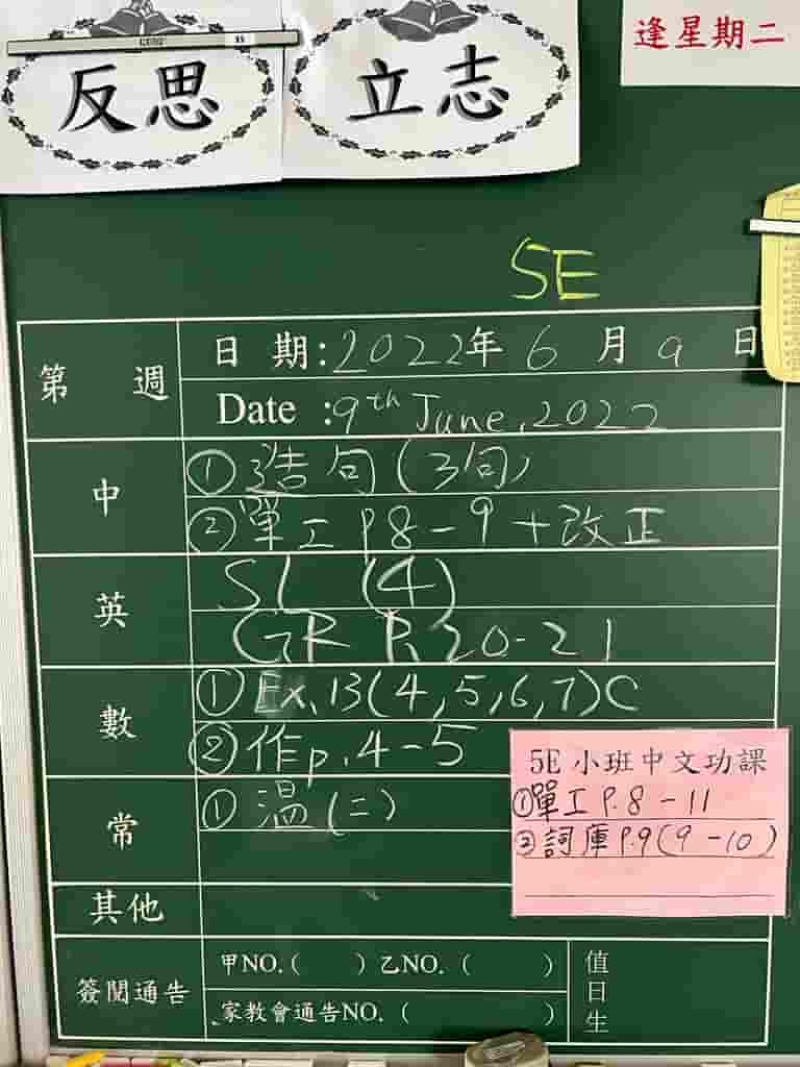 反思
立志
逢星期二
5E
第 週
日 期:2022年 6 月 9 日
Date :9th June, 2022
中
①造句(3句)
②單工 P.8-9 + 改正
英
SL (4)
GR P.20-21
數
① Ex.13(4,5,6,7)C
②作p.4-5
常
① 溫(二)
5E 小班中文功課
①單工 P.8-11
②詞庫 P.9(9-10)
其他
簽閱通告
甲NO.( )乙NO.( )
家教會通告NO.( )
值日生